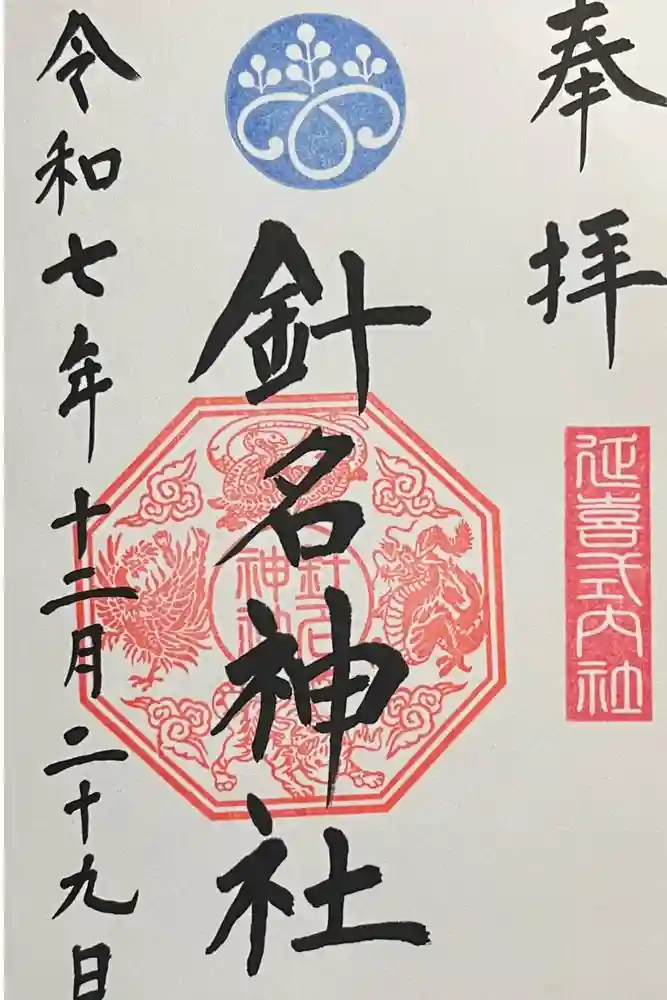 奉拝
延喜式内社
針名神社
令和七年十二月二十九日